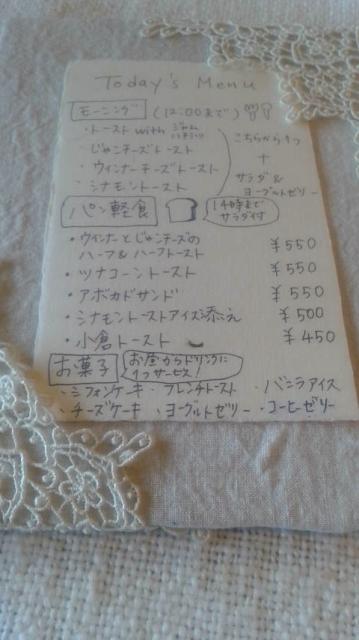 Today's Menu
モーニング (12:00まで)
・トースト with ジャム
・じゃこチーズトースト
・ウィンナーチーズトースト
・シナモントースト
こちらから1つ
+
サラダ&
ヨーグルトゼリー
パン軽食
14時まで
サラダ付
・ウィンナーとじゃこチーズの
ハーフ&ハーフトースト ¥550
・ツナコーントースト ¥550
・アボカドサンド ¥550
・シナモントーストアイス添え ¥500
・小倉トースト ¥450
お菓子
お昼からドリンクに
1つサービス!
・シフォンケーキ ・フレンチトースト ・バニラアイス
・チーズケーキ ・ヨーグルトゼリー ・コーヒーゼリー